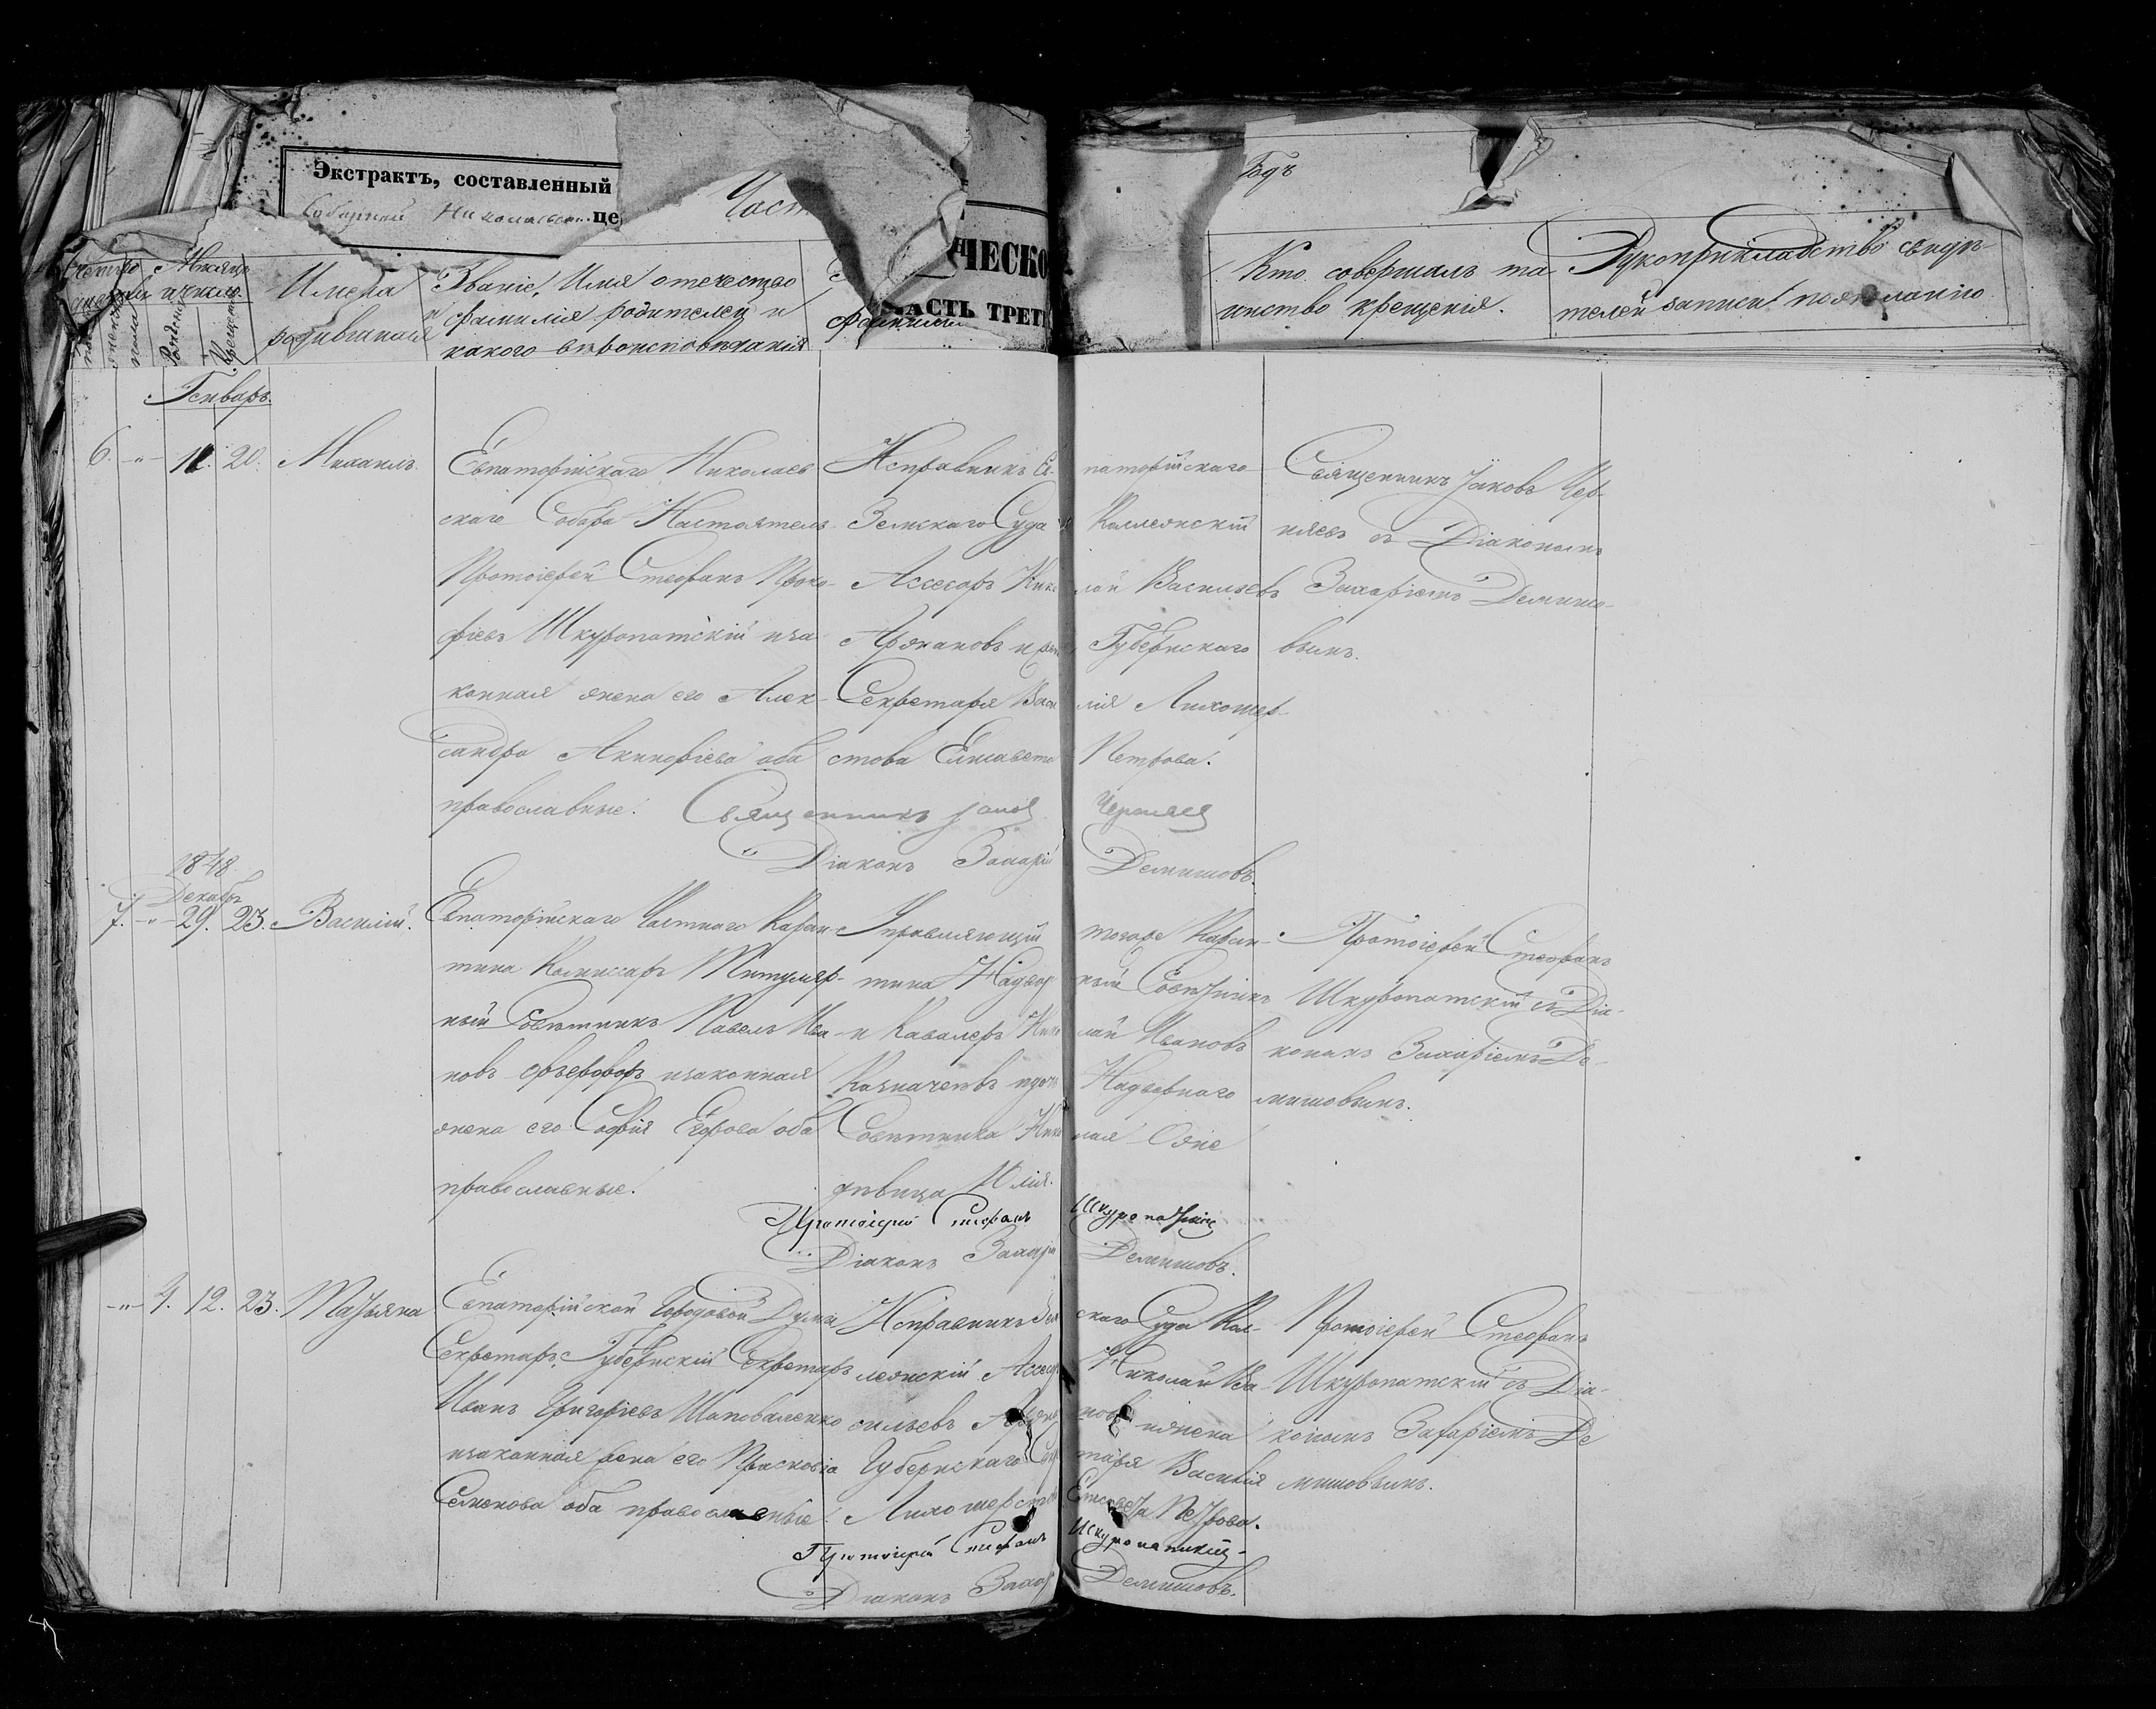 Экстрактъ, составленный
Соборной Николаевск. це
Част
ЧЕСКО
АСТЬ ТРЕТ
Годъ
Счетъ
Мѣсяцъ
и число.
Рожденія
Крещенія
Имена
родившихся
Званіе, Имя отечество
и фамилія родителей и
какого вѣроисповѣданія
фамилія
Кто совершалъ та-
инство крещенія.
Рукоприкладство свидѣ-
телей записи по желанію
Генварь.
6. -"- 11. 20. Михаилъ.
Евпаторійскаго Николаев-
скаго Собора Настоятель
Протоіерей Стефанъ Проко-
фіевъ Шкуропатскій и за-
конная жена его Алек-
сандра Акинфіева оба
православные.
Исправникъ Ев-паторійскаго
Земскаго Суда Коллежскій
Ассесоръ Николай Васильевъ
Аржановъ и Губернскаго
Секретаря Василія Лихошер-
стова Елисавета Петрова.
Священникъ Іаковъ Чер-
няевъ съ Діакономъ
Захаріемъ Демишо-
вымъ.
Священникъ Іаковъ Черняев
Діаконъ Захарій Демишовъ.
1848
Декабрь
7. -"- 29. 23. Василій.
Евпаторійскаго Частнаго Каран-
тина Комиссаръ Титуляр-
ный Совѣтникъ Павелъ Ива-
новъ и законная
жена его Софія Егорова оба
православные.
Управляющій тогоже Каран-
тина Надворный Совѣтникъ
и Кавалеръ Николай Ивановъ
Казначеевъ и дочь Надворнаго
Совѣтника Николая
дѣвица Юлія.
Протоіерей Стефанъ
Шкуропатскій съ Діа-
кономъ Захаріемъ Де-
мишовымъ.
Протоіерей Стефанъ Шкуропатский
Діаконъ Захарій Демишовъ.
-"- 4. 12. 23. Татьяна
Евпаторійской Городовой Думы
Секретарь, Губернскій Секретарь
Иванъ Григорьевъ Шаповаленко
и законная жена его Прасковія
Семенова оба православные.
Исправникъ Земскаго Суда Кол-
лежскій Ассесоръ Николай Ва-
сильевъ Аржановъ и жена
Губернскаго Секретаря Василія
Лихошерстова Елисавета Петрова.
Протоіерей Стефанъ
Шкуропатскій съ Діа-
кономъ Захаріемъ Де
мишовымъ.
Протоіерей Стефанъ Шкуропатский
Діаконъ Захар Демишовъ.